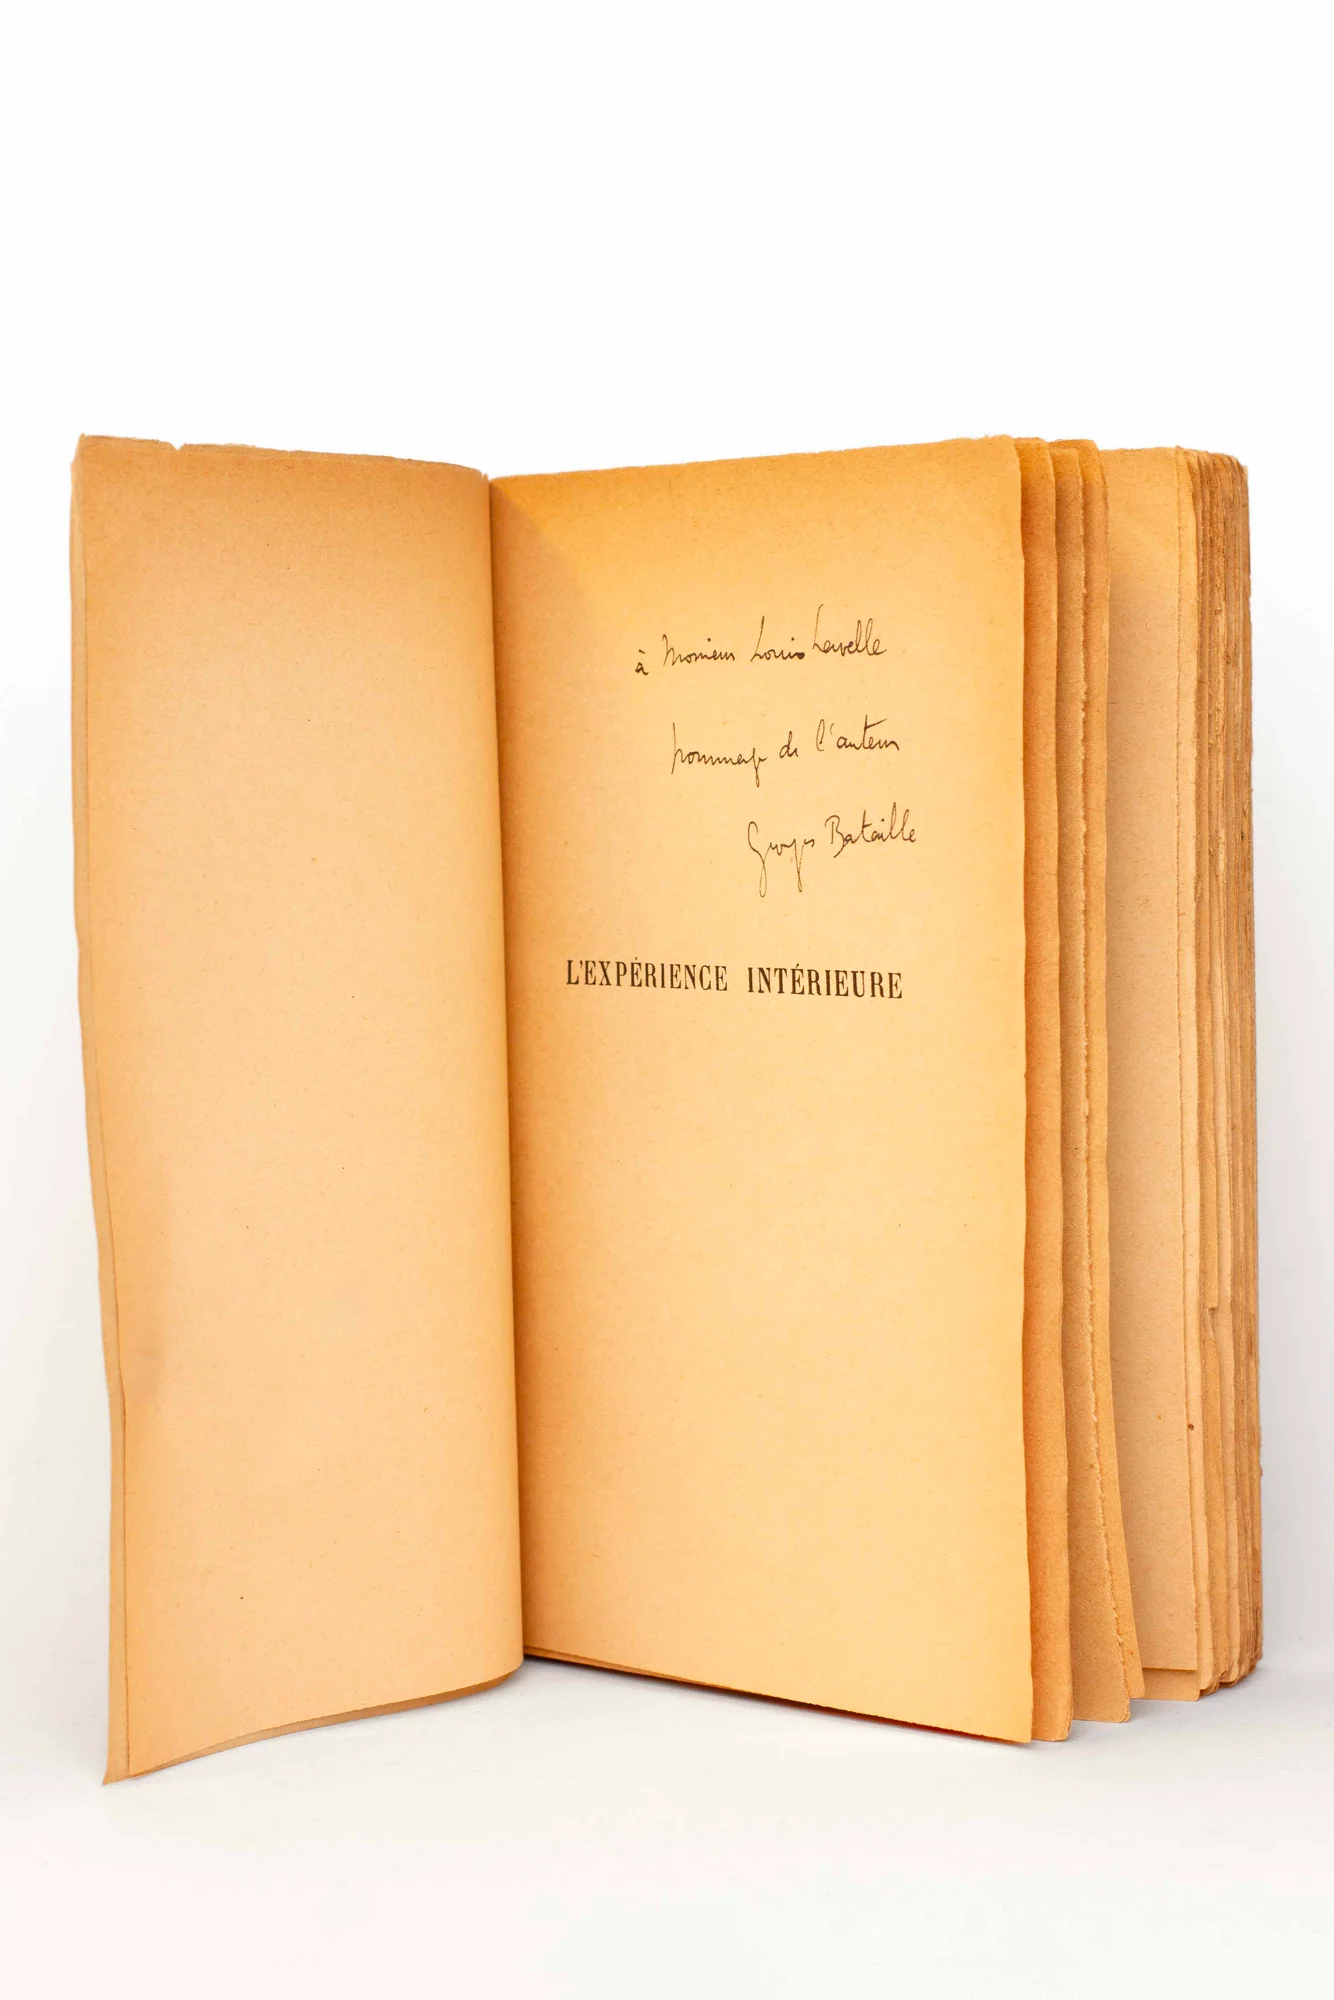 à Monsieur Louis Lavelle
hommage de l'auteur
Georges Bataille
L'EXPÉRIENCE INTÉRIEURE